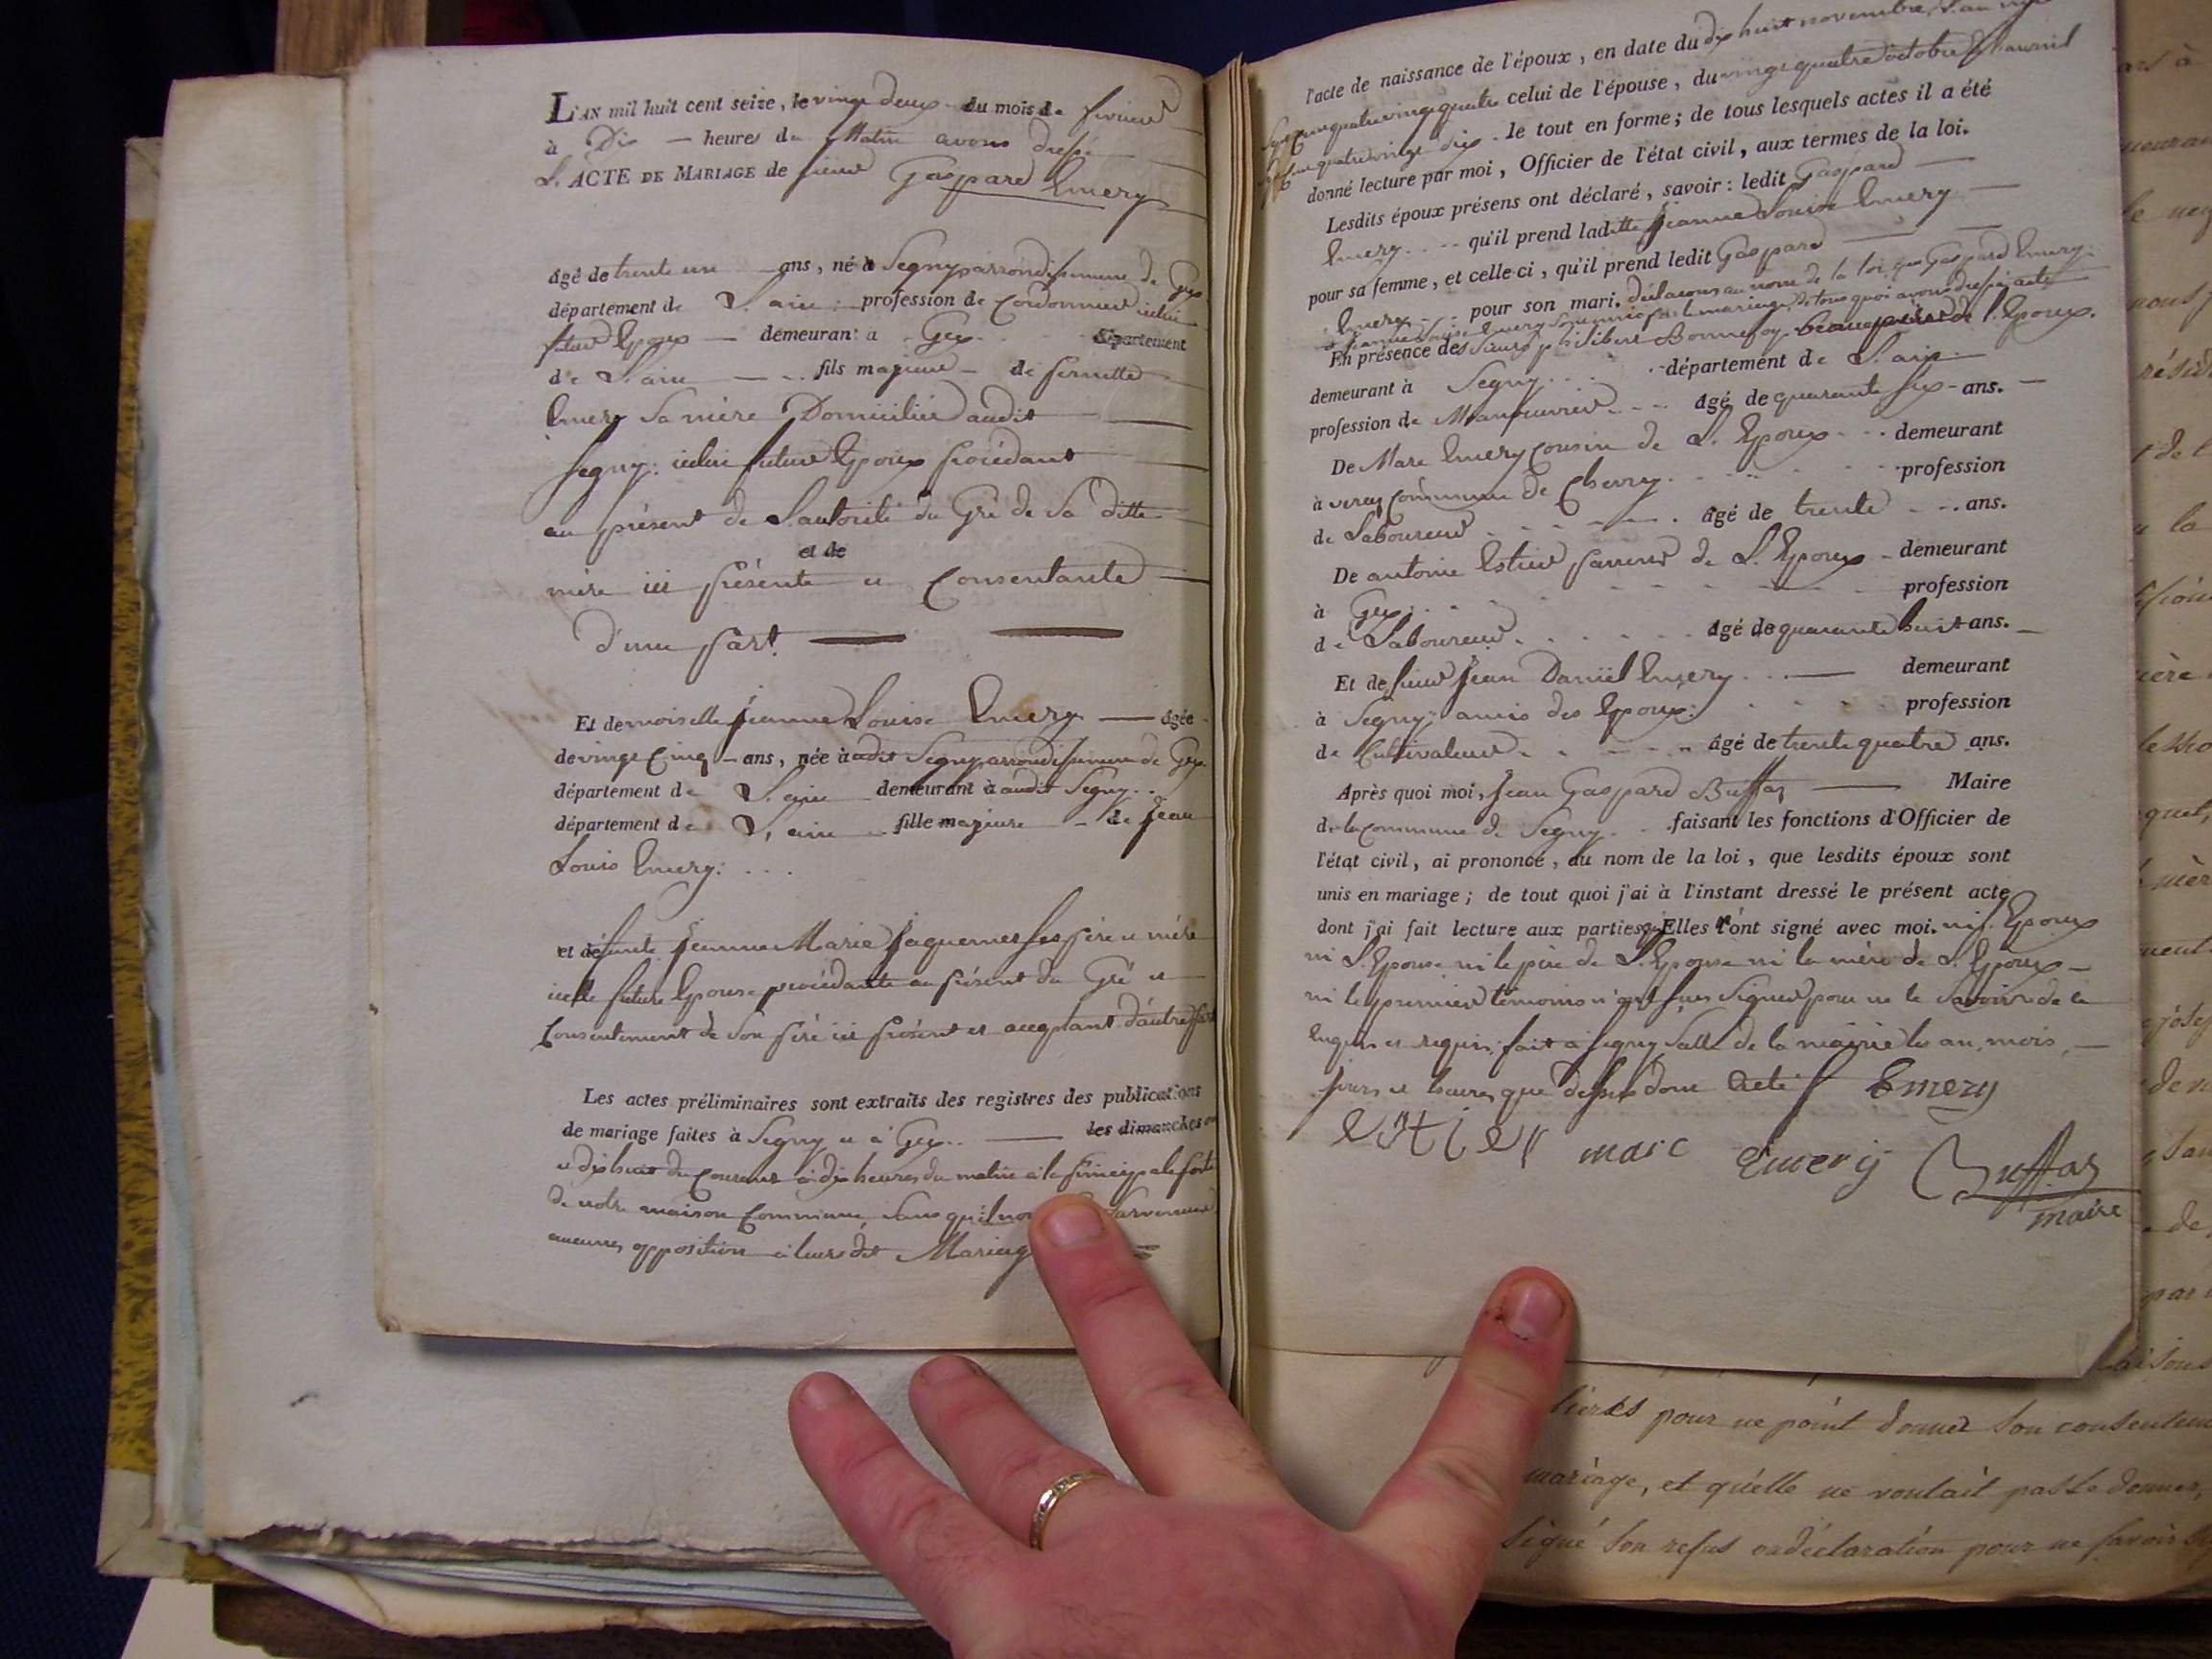 L'AN mil huit cent seize, le vingt deux du mois de fevrier
à Dix heures du Matin avons dressé
L'ACTE DE MARIAGE de sieur Gaspard Emery
âgé de trente un ans, né à Segny arrondissement de Gex
département de L'ain profession de Cordonnier icelui
futur Epoux demeurant à Gex département
de L'ain fils majeur de pernette
Emery Sa mère Domiciliée audit
Segny: icelui futur Epoux procédant
au présent de L'autorité du Gré de Sa ditte
et de
mère ici présente et Consentante
D'une part.
Et demoiselle Jeanne Louise Emery âgée
de vingt Cinq ans, née audit Segny arrondissement de Gex
département de L'ain demeurant à audit Segny
département de L'ain fille majeure de Jean
Louis Emery
et défunte Jeanne Marie Jaquemet Ses père et mère
icelle future Epouse procédante au présent du Gré et
Consentement de Son père ici présent et acceptant d'autre part
Les actes préliminaires sont extraits des registres des publications
de mariage faites à Segny et à Gex les dimanches
et dixhuit du Courant à dix heures du matin à la principale porte
de notre maison Commune, sans qu'il parvenue
aucunes opposition à leurs dit Mariage
l'acte de naissance de l'époux, en date du dix huit novembre L'an mil
Sept cent quatre vingt quatre celui de l'épouse, du vingt quatre octobre L'an mil
Sept cent quatre vingt dix le tout en forme; de tous lesquels actes il a été
donné lecture par moi, Officier de l'état civil, aux termes de la loi.
Lesdits époux présens ont déclaré, savoir: ledit Gaspard
Emery qu'il prend laditte Jeanne Louise Emery
pour sa femme, et celle-ci, qu'il prend ledit Gaspard
Emery pour son mari. déclarons au nom de la loi que Gaspard Emery
et Jeanne Louise Emery Sont unis par le mariage De tout quoi avons dressé acte
En présence des Sieurs philibert Bonnefoy beaupère de l'Epoux.
demeurant à Segny département de L'ain
profession de Manoeuvrier âgé de quarante six ans.
De Marc Emery Cousin de L'Epoux demeurant
à veraz Commune de Chevry profession
de Laboureur âgé de trente ans.
De antoine Estier parent de L'Epoux demeurant
à Gex profession
de Laboureur âgé de quarante huit ans.
Et de sieur Jean Daniel Emery demeurant
à Segny amis des Epoux: profession
de Cultivateur âgé de trente quatre ans.
Après quoi moi, Jean Gaspard Buffaz Maire
de la Commune de Segny faisant les fonctions d'Officier de
l'état civil, ai prononcé, au nom de la loi, que lesdits époux sont
unis en mariage; de tout quoi j'ai à l'instant dressé le présent acte
dont j'ai fait lecture aux parties. Elles l'ont signé avec moi. ni L'Epoux
ni L'Epouse ni le père de L'Epouse ni la mère de L'Epoux
ni le premier témoins n'ont sus Signer pour ne le Savoir de ce
Enquis et requis; fait à Segny Salle de la mairie les an, mois,
jours et heures que dessus dont acte Emery
estier marc Emery Buffaz
maire
pour ne point donner Son consentem
mariage, et qu'elle ne voulait pas le donner,
Signé Son refus ou déclaration pour ne Savoir